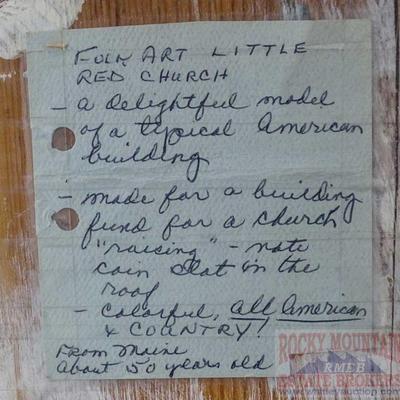 FOLK ART LITTLE
RED CHURCH
- a delightful model
of a typical American
building
- made for a building
fund for a church
"raising" - note
coin slot in the
roof
- colorful, all American
& COUNTRY!
From Maine
About 50 years old
ROCKY MOUNTAIN
RMEB
ESTATE BROKERS
www.whitleyauction.com